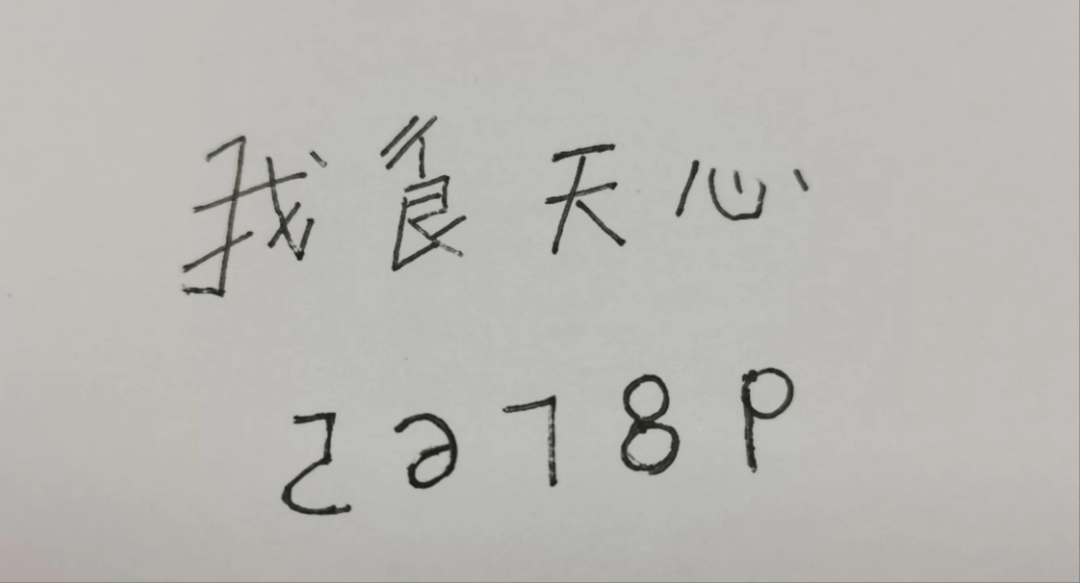 我食天心
56789